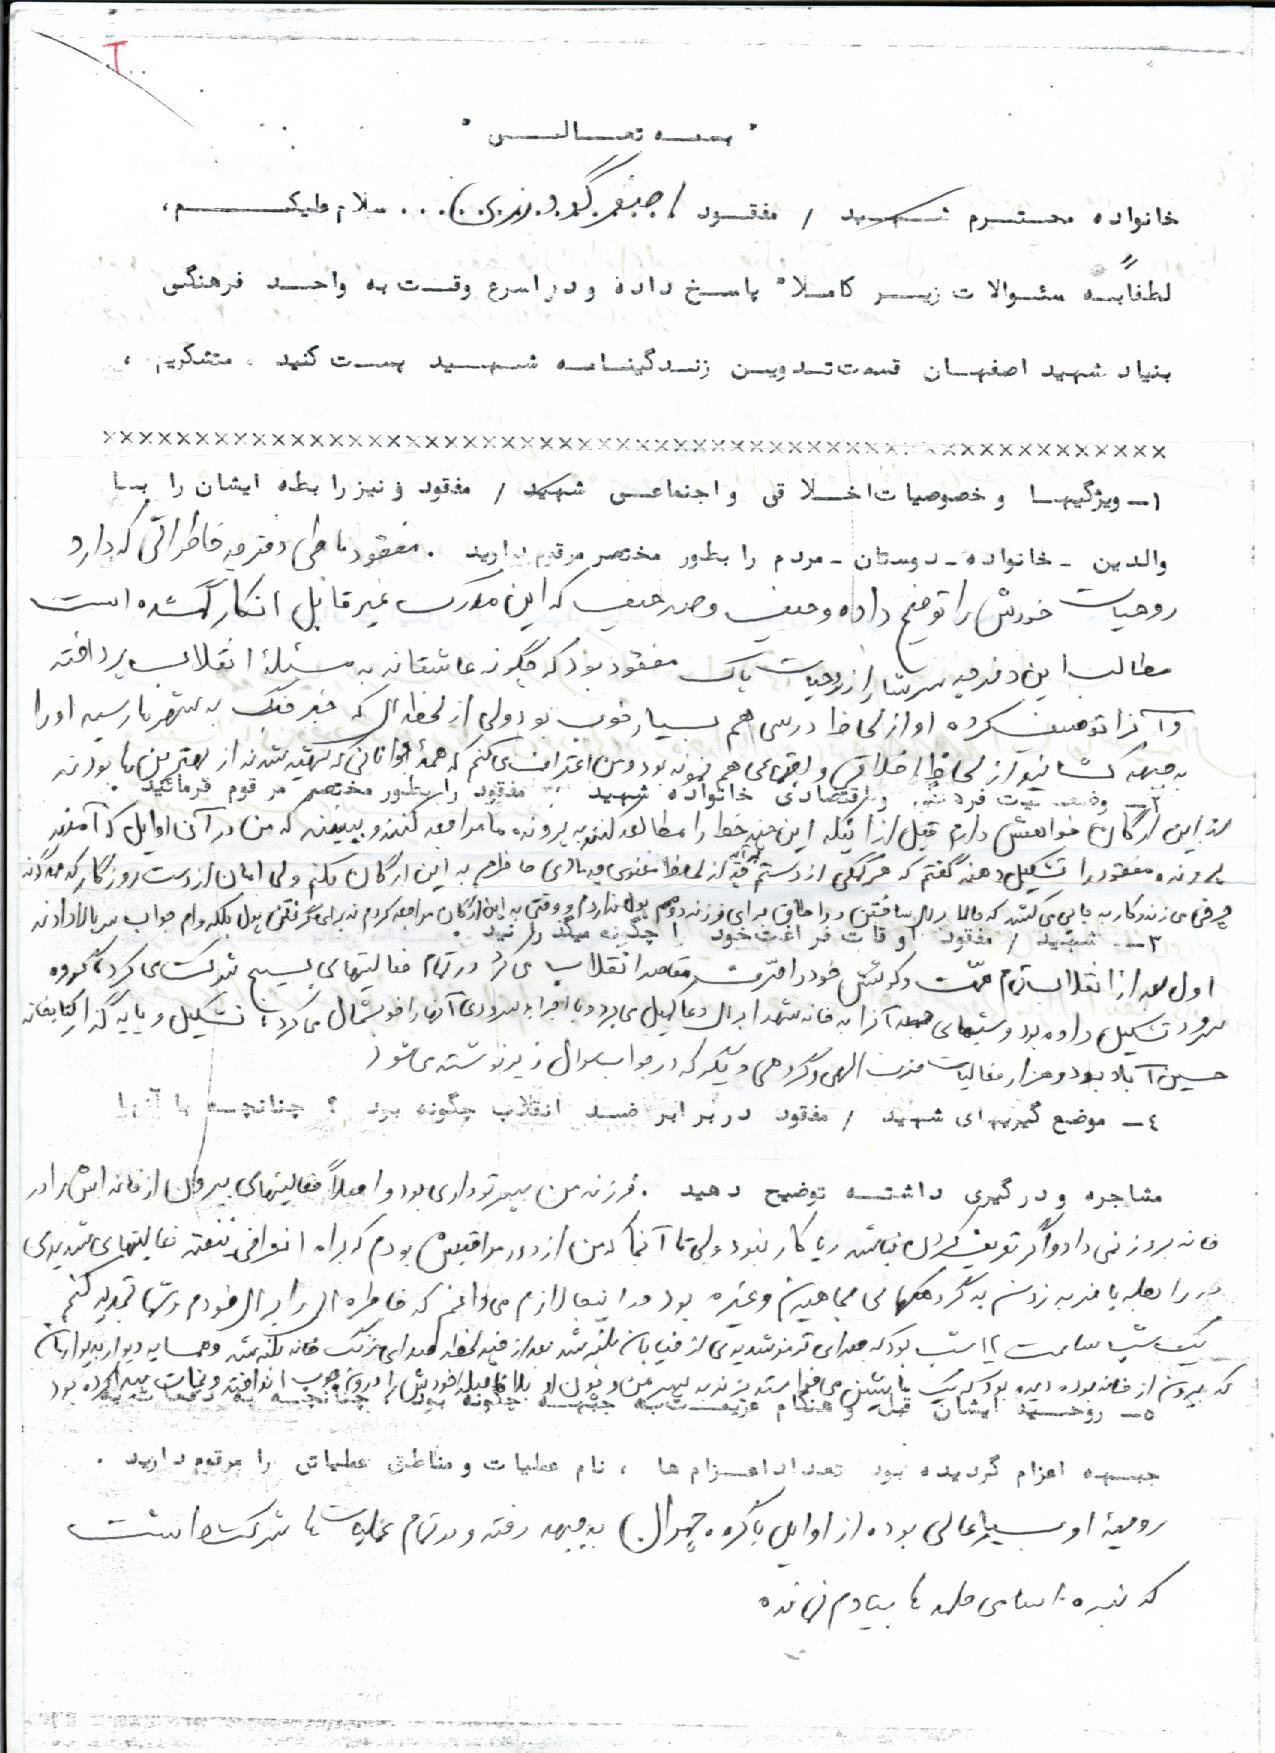 " بسمه تعالی "
خانواده محترم شهید / مفقود / جعفر گودرزی ... سلام علیکم،
لطفاً به سئوالات زیر کاملا" پاسخ داده و در اسرع وقت به واحد فرهنگی
بنیاد شهید اصفهان قسمت تدوین زندگینامه شهید پست کنید . متشکریم ،
××××××××××××××××××××××××××××××××××××××××××××××××××××××××××
۱- ویژگیها و خصوصیات اخلاقی و اجتماعی شهید / مفقود و نیز رابطه ایشان را با
والدین - خانواده - دوستان - مردم را بطور مختصر مرقوم دارید . مفقود ما طی دفترچه خاطراتی که دارد
روحیات خودش را توضیح داده و حیف و صد حیف که این مدرک غیر قابل انکار گمشده است
مطالب این دفترچه سرشار از روحیات پاک مفقود بود که چگونه عاشقانه به مسئله انقلاب پرداخته
و آنرا توصیف کرده او از لحاظ درسی هم بسیار خوب بود ولی از لحظه ای که خبر جنگ به شهر ما رسید او را
به جبهه کشانید از لحاظ اخلاقی و اجتماعی هم نمونه بود و من اعتراف می کنم که همۀ جوانانی که شهید شدند از بهترین ما بودند
۲- وضعیت فرهنگی و اقتصادی خانواده شهید / مفقود را بطور مختصر مرقوم فرمائید .
از این ارگان خواهش دارم قبل از اینکه این چند خط را مطالعه کنند به پرونده ما مراجعه کنند و ببینند که من در آن اوایل که آمدند
پرونده مفقود را تشکیل دهند گفتم که هر کمکی از دستم بر آید از لحاظ معنوی و مادی حاضرم به این ارگان بکنم ولی امان از دست روزگار که
۳- شهید / مفقود اوقات فراغت خود را چگونه میگذرانید .
اول بعد از انقلاب تمام همت و کوشش خود را صرف مقاصد انقلاب می کرد در تمام فعالیتهای بسیج شرکت می کرد، گروه
سرود تشکیل داده بود و شبهای جمعه آنرا به خانه شهدا برای دعا کمیل می برد و با اجرا سرودی آنها را خوشحال می کرد، تشکیل و پایه گذار کتابخانه
حسین آباد بود و هزار فعالیت دیگر که در جواب سوال زیر نوشته می شود
۴- موضع گیریهای شهید / مفقود در برابر ضد انقلاب چگونه بود ؟ چنانچه با آنها
مشاجره و درگیری داشته توضیح دهید . فرزند من پسر توداری بود و اصلاً فعالیتهای بیرون از خانه اش را در
خانه بروز نمی داد و اگر تعریف کردن نباشد ریا کار نبود ولی تا آنجا که من از دور مراقبش بودم که براه انحرافی نیفتد فعالیتهای شدیدی
در رابطه با ضربه زدن به گروهکهای مجاهدین و غیره بود در اینجا لازم می دانم که خاطره ای را برای خودم و شما تجدید کنم
یک شب ساعت ۱۲ شب بود که صدای ترمز شدیدی از خیابان بلند شد بعد از چند لحظه صدای زنگ خانه بلند شد و همسایه دیوار به دیوارمان
که بیرون از خانه بوده دیده بود که یک ماشین می خواسته بزند به پسر من و چون او بلافاصله خودش را درون جوب انداخته و نجات پیدا کرده بود
۵- روحیه ایشان قبل و هنگام عزیمت به جبهه چگونه بود ، چنانچه به دفعات به
جبهه اعزام گردیده بود تعداد اعزام ها ، نام عملیات و مناطق عملیاتی را مرقوم دارید .
روحیۀ او بسیار عالی بوده از اوایل با گروه چمران به جبهه رفته و در تمام عملیات ها شرکت داشت
که بنده اسامی حمله ها بیادم نمانده